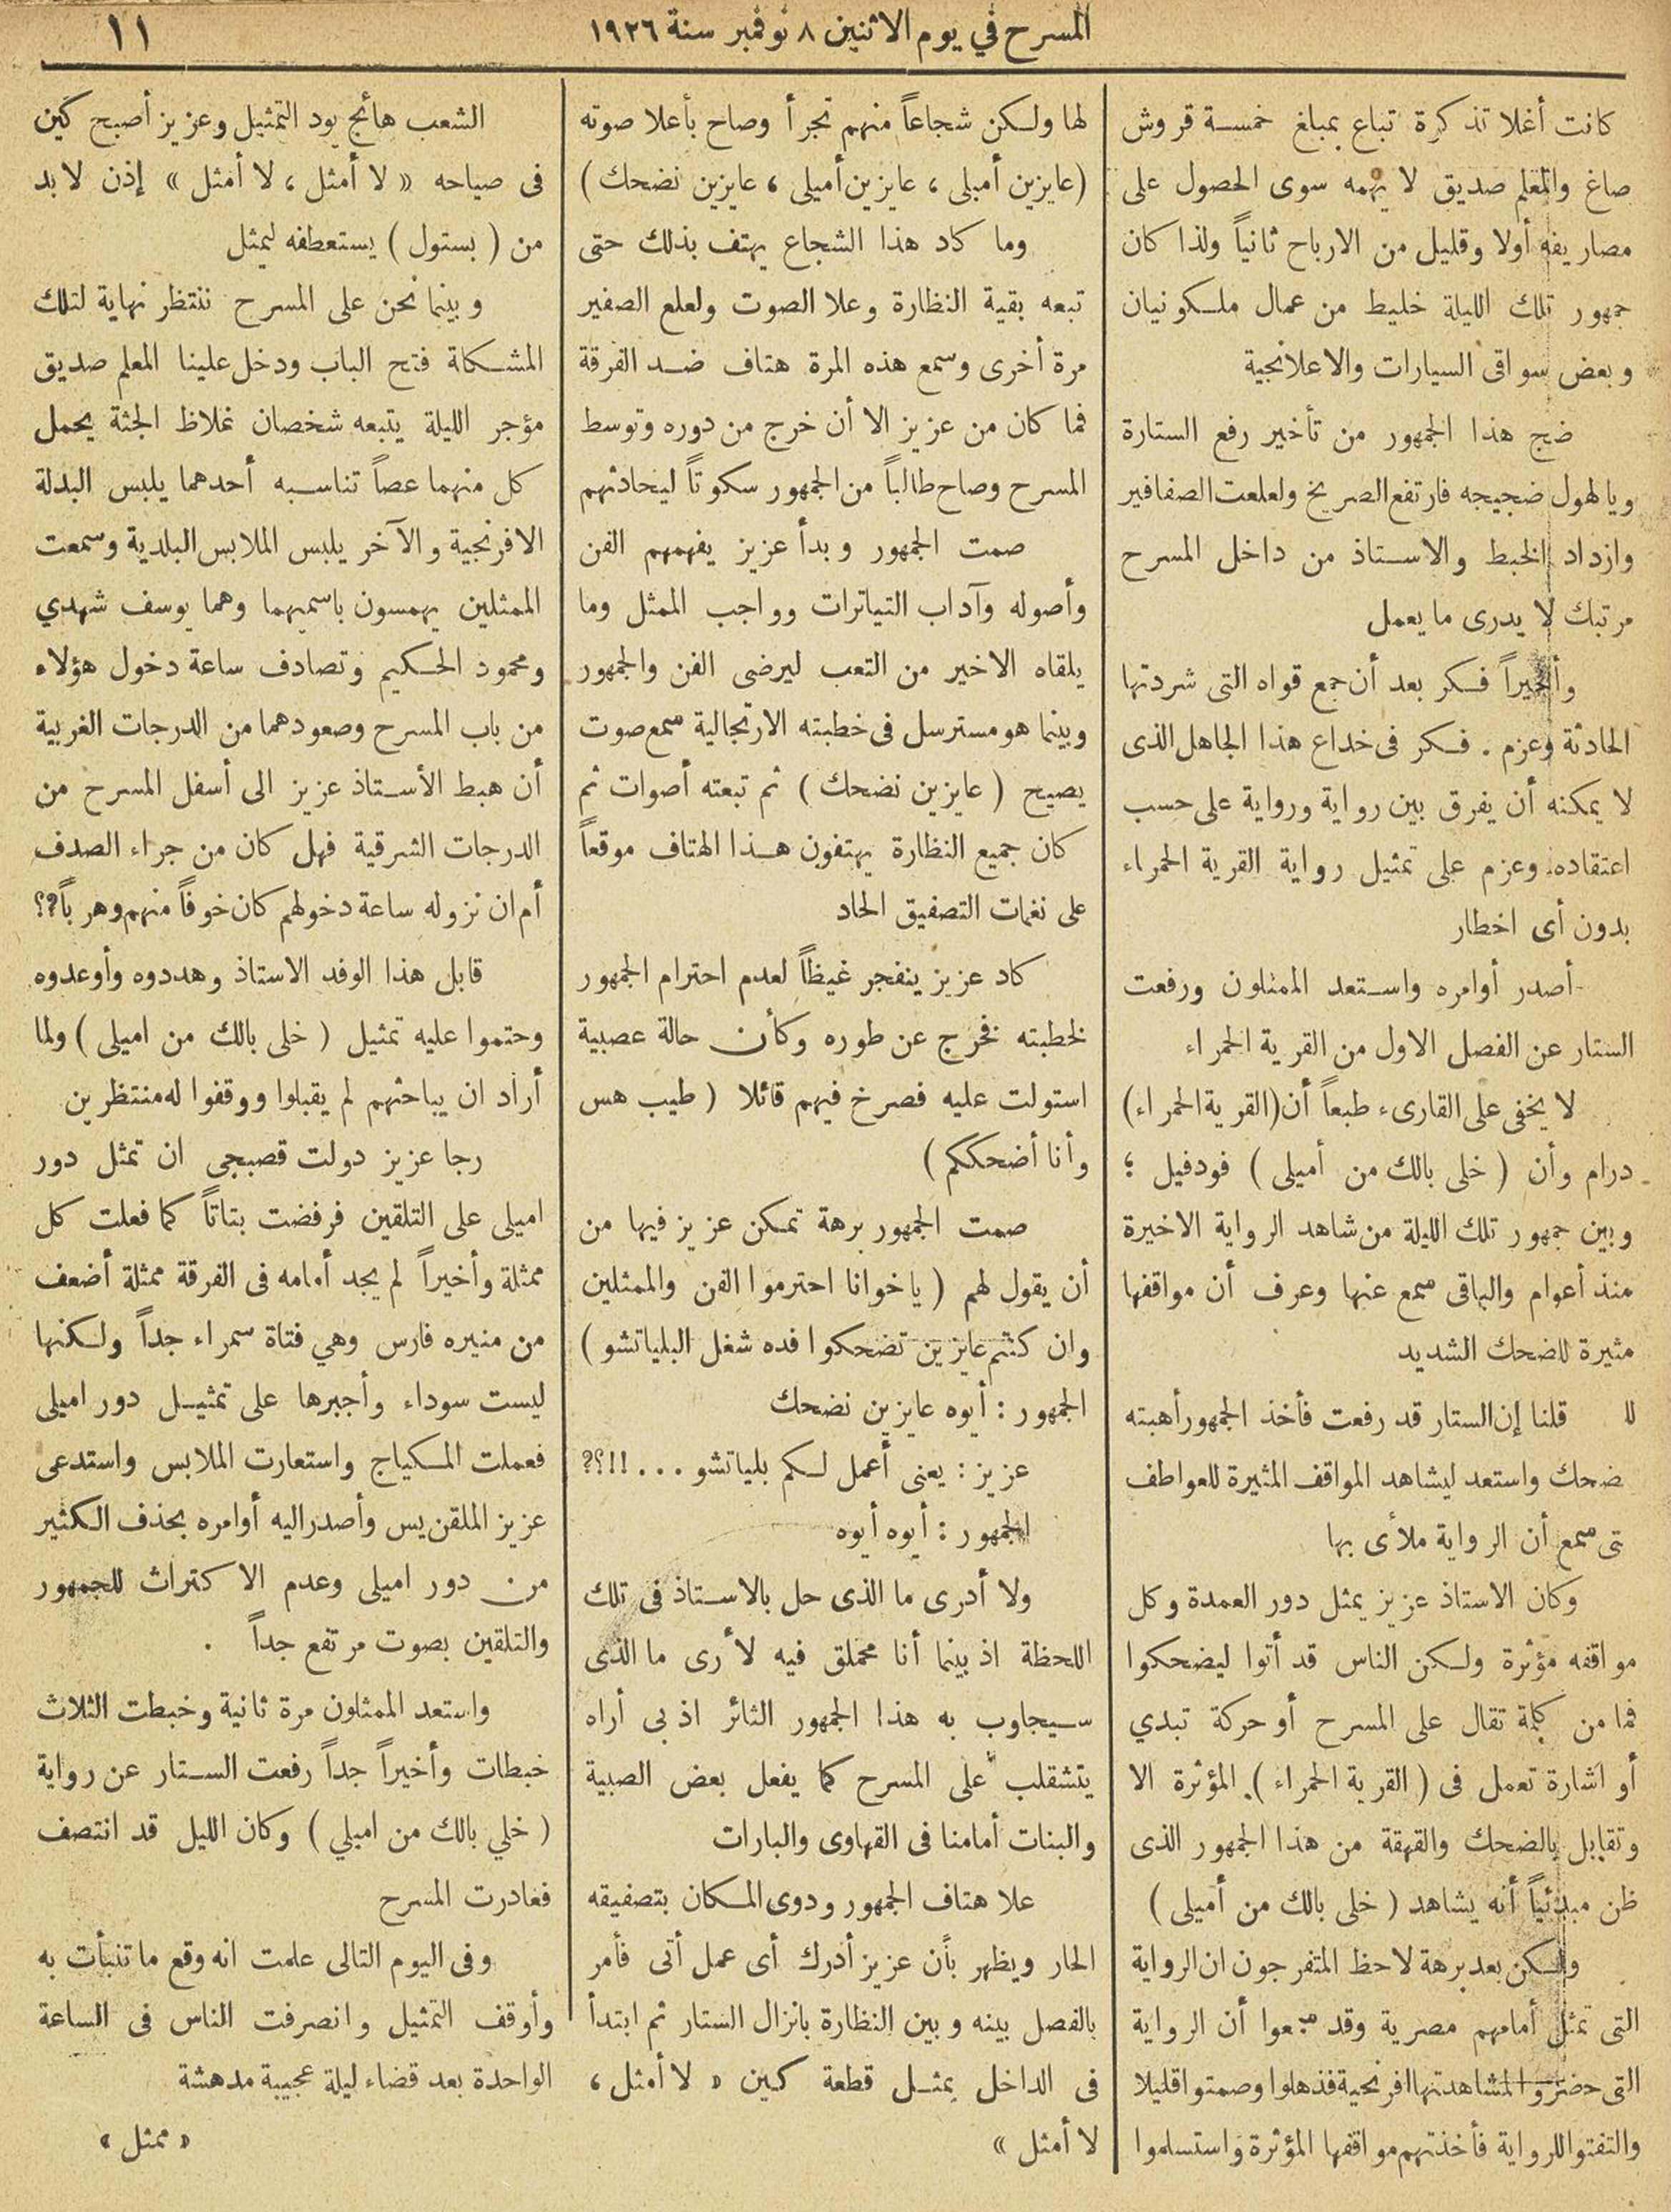 المسرح في يوم الاثنين ٨ نوفمبر سنة ١٩٢٦
١١
كانت أغلا تذكرة تباع بمبلغ خمسة قروش
صاغ والمعلم صديق لا يهمه سوى الحصول على
مصاريفه أولا وقليل من الارباح ثانياً ولذا كان
جمهور تلك الليلة خليط من عمال ملكونيان
وبعض سواقى السيارات والاعلانجية
ضج هذا الجمهور من تأخير رفع الستارة
ويالهول ضجيجه فارتفع الصريخ ولعلعت الصفافير
وازداد الخبط والاستاذ من داخل المسرح
مرتبك لا يدرى ما يعمل
وأخيراً فكر بعد أن جمع قواه التى شردتها
الحادثة وعزم . فكر فى خداع هذا الجاهل الذى
لا يمكنه أن يفرق بين رواية ورواية على حسب
اعتقاده وعزم على تمثيل رواية القرية الحمراء
بدون أى اخطار
أصدر أوامره واستعد الممثلون ورفعت
الستار عن الفصل الاول من القرية الحمراء
لا يخفى على القارىء طبعاً أن (القرية الحمراء)
درام وأن ( خلى بالك من أميلى ) فودفيل ؛
وبين جمهور تلك الليلة من شاهد الرواية الاخيرة
منذ أعوام والباقى سمع عنها وعرف أن مواقفها
مثيرة للضحك الشديد
قلنا إن الستار قد رفعت فأخذ الجمهور أهبته
لل
ضحك واستعد ليشاهد المواقف المثيرة للعواطف
تى سمع أن الرواية ملأى بها
وكان الاستاذ عزيز يمثل دور العمدة وكل
مواقفه مؤثرة ولكن الناس قد أتوا ليضحكوا
فما من كلمة تقال على المسرح أو حركة تبدي
أو اشارة تعمل فى ( القرية الحمراء ) المؤثرة الا
وتقابل بالضحك والقهقة من هذا الجمهور الذى
ظن مبدئياً أنه يشاهد ( خلى بالك من أميلى )
ولكن بعد برهة لاحظ المتفرجون ان الرواية
التى تمثل أمامهم مصرية وقد سمعوا أن الرواية
التى حضروا لمشاهدتها افرنجية فذهلوا وصمتوا قليلا
والتفتوا للرواية فأخذتهم مواقفها المؤثرة واستسلموا
لها ولكن شجاعاً منهم تجرأ وصاح بأعلا صوته
(عايزين أميلى ، عايزين أميلى ، عايزين نضحك )
وما كاد هذا الشجاع يهتف بذلك حتى
تبعه بقية النظارة وعلا الصوت ولعلع الصفير
مرة أخرى وسمع هذه المرة هتاف ضد الفرقة
فما كان من عزيز الا أن خرج من دوره وتوسط
المسرح وصاح طالباً من الجمهور سكوتاً ليحادثهم
صمت الجمهور وبدأ عزيز يفهمهم الفن
وأصوله وآداب التياترات وواجب الممثل وما
يلقاه الاخير من التعب ليرضى الفن والجمهور
وبينما هو مسترسل فى خطبته الارتجالية سمع صوت
يصيح ( عايزين نضحك ) ثم تبعته أصوات ثم
كان جميع النظارة يهتفون هذا الهتاف موقعاً
على نغمات التصفيق الحاد
كاد عزيز ينفجر غيظاً لعدم احترام الجمهور
لخطبته فخرج عن طوره وكأن حالة عصبية
استولت عليه فصرخ فيهم قائلا ( طيب هس
وأنا أضحككم )
صمت الجمهور برهة تمكن عزيز فيها من
أن يقول لهم ( ياخوانا احترموا الفن والممثلين
وان كنتم عايزين تضحكوا فده شغل البلياتشو )
الجمهور : أيوه عايزين نضحك
عزيز : يعنى أعمل لكم بلياتشو . . . !!؟؟
الجمهور : أيوه أيوه
ولا أدرى ما الذى حل بالاستاذ فى تلك
اللحظة اذ بينما أنا محملق فيه لأرى ما الذى
سيجاوب به هذا الجمهور الثائر اذ بى أراه
يتشقلب على المسرح كما يفعل بعض الصبية
والبنات أمامنا فى القهاوى والبارات
علا هتاف الجمهور ودوى المكان بتصفيقه
الحار ويظهر بأن عزيز أدرك أى عمل أتى فأمر
بالفصل بينه وبين النظارة بانزال الستار ثم ابتدأ
فى الداخل يمثل قطعة كين « لا أمثل ،
لا أمثل »
الشعب هائج يود التمثيل وعزيز أصبح كين
فى صياحه « لا أمثل ، لا أمثل » إذن لا بد
من ( بستول ) يستعطفه ليمثل
وبينما نحن على المسرح ننتظر نهاية لتلك
المشكلة فتح الباب ودخل علينا المعلم صديق
مؤجر الليلة يتبعه شخصان غلاظ الجثة يحمل
كل منهما عصاً تناسبه أحدهما يلبس البدلة
الافرنجية والآخر يلبس الملابس البلدية وسمعت
الممثلين يهمسون باسميهما وهما يوسف شهدي
ومحمود الحكيم وتصادف ساعة دخول هؤلاء
من باب المسرح وصعودهما من الدرجات الغربية
أن هبط الأستاذ عزيز الى أسفل المسرح من
الدرجات الشرقية فهل كان من جراء الصدف
أم ان نزوله ساعة دخولهم كان خوفاً منهم وهرباً؟؟
قابل هذا الوفد الاستاذ وهددوه وأوعدوه
وحتموا عليه تمثيل ( خلى بالك من اميلى ) ولما
أراد ان يباحثهم لم يقبلوا ووقفوا له منتظرين
رجا عزيز دولت قصبجى ان تمثل دور
اميلى على التلقين فرفضت بتاتاً كما فعلت كل
ممثلة وأخيراً لم يجد أمامه فى الفرقة ممثلة أضعف
من منيره فارس وهي فتاة سمراء جداً ولكنها
ليست سوداء وأجبرها على تمثيل دور اميلى
فعملت المكياج واستعارت الملابس واستدعى
عزيز الملقن يس وأصدر اليه أوامره بحذف الكثير
من دور اميلى وعدم الاكتراث للجمهور
والتلقين بصوت مرتفع جداً .
واستعد الممثلون مرة ثانية وخبطت الثلاث
خبطات وأخيراً جداً رفعت الستار عن رواية
( خلي بالك من اميلي ) وكان الليل قد انتصف
فغادرت المسرح
وفى اليوم التالى علمت انه وقع ما تنبأت به
وأوقف التمثيل وانصرفت الناس فى الساعة
الواحدة بعد قضاء ليلة عجيبة مدهشة
« ممثل »